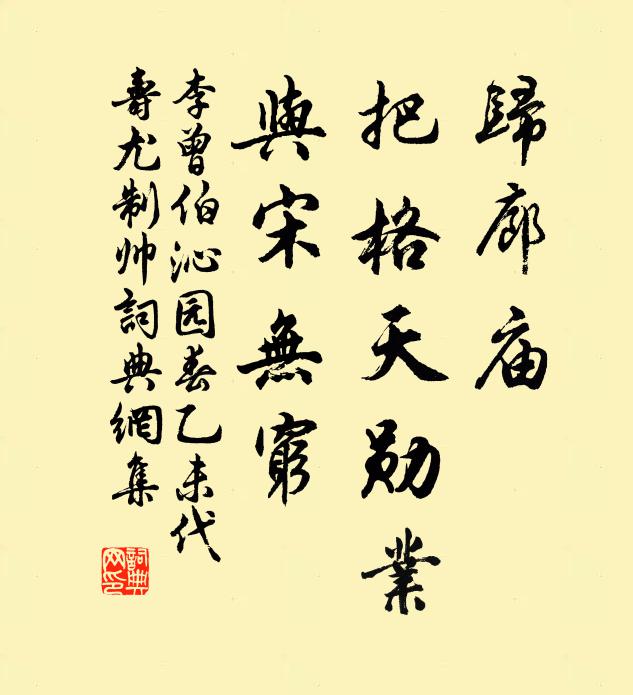 歸廊庙
把格天勋業
與宋無窮
李曾伯沁园春乙未代
壽尤制帅詞典網集
詞典网印